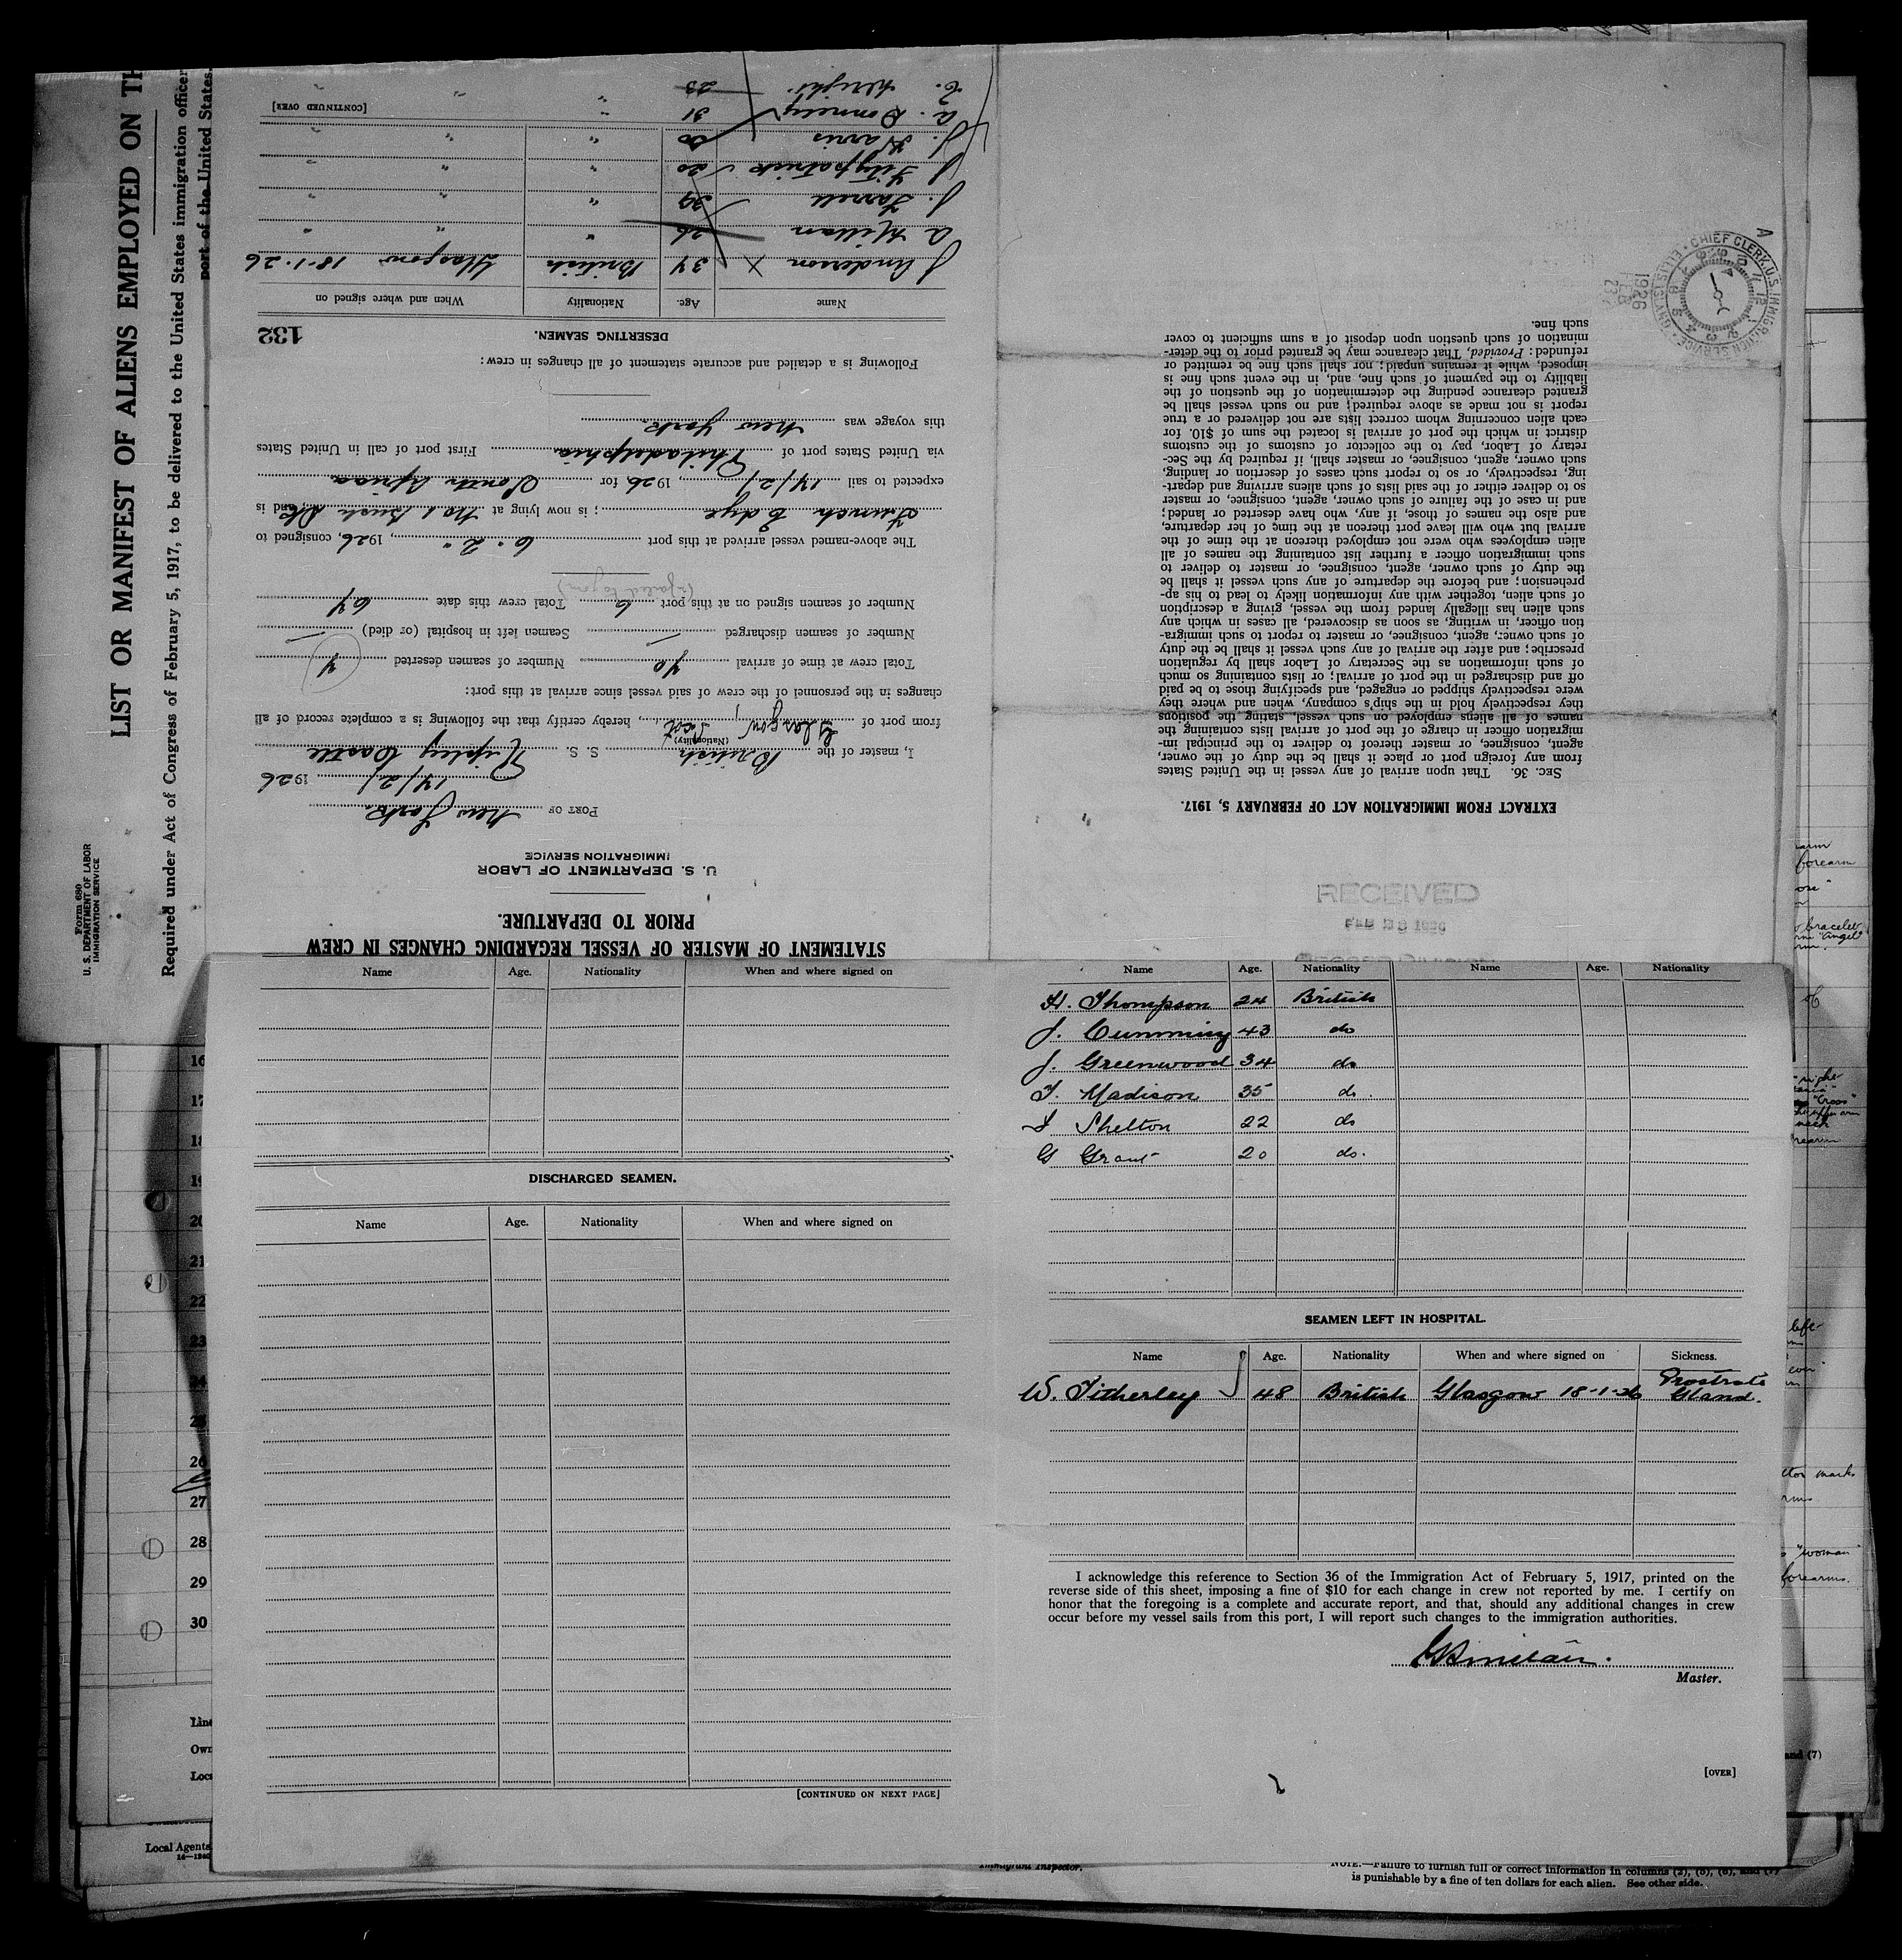 LIST OR MANIFEST OF ALIENS EMPLOYED ON TH
Required under Act of Congress of February 5, 1917, to be delivered to the United States immigration officer
port of the United States.
Form 680
U. S. DEPARTMENT OF LABOR
IMMIGRATION SERVICE
STATEMENT OF MASTER OF VESSEL REGARDING CHANGES IN CREW
PRIOR TO DEPARTURE.
U. S. DEPARTMENT OF LABOR
IMMIGRATION SERVICE
PORT OF New York
14/2/ 1926
I, master of the British S. S. Ripley Castle
(Nationality)
from port of Glasgow, Scot, hereby certify that the following is a complete record of all
changes in the personnel of the crew of said vessel since arrival at this port:
Total crew at time of arrival 70 Number of seamen deserted 7
Number of seamen discharged — Seamen left in hospital (or died) —
Number of seamen signed on at this port 6 Total crew this date 64
(failed to join)
The above-named vessel arrived at this port 6 . 2 ., 1926, consigned to
Funch Edye ; is now lying at No 1 Bush Dk, and is
expected to sail 14/2/, 1926 for South Africa
via United States port of Philadelphia First port of call in United States
this voyage was New York
Following is a detailed and accurate statement of all changes in crew:
DESERTING SEAMEN.
132
Name Age. Nationality When and where signed on
J Anderson X 34 British Glasgow 18-1-26
A Millan 26 " " "
J. Farrell 39 " " "
J Fitzpatrick 20 " " "
J. Harris 20 " " "
A. Donnelly 31 "
C. Wright 23 " " "
[CONTINUED OVER]
EXTRACT FROM IMMIGRATION ACT OF FEBRUARY 5, 1917.
SEC. 36. That upon arrival of any vessel in the United States
from any foreign port or place it shall be the duty of the owner,
agent, consignee, or master thereof to deliver to the principal im-
migration officer in charge of the port of arrival lists containing the
names of all aliens employed on such vessel, stating the positions
they respectively hold in the ship's company, when and where they
were respectively shipped or engaged, and specifying those to be paid
off and discharged in the port of arrival; or lists containing so much
of such information as the Secretary of Labor shall by regulation
prescribe; and after the arrival of any such vessel it shall be the duty
of such owner, agent, consignee, or master to report to such immigra-
tion officer, in writing, as soon as discovered, all cases in which any
such alien has illegally landed from the vessel, giving a description
of such alien, together with any information likely to lead to his ap-
prehension; and before the departure of any such vessel it shall be
the duty of such owner, agent, consignee, or master to deliver to
such immigration officer a further list containing the names of all
alien employees who were not employed thereon at the time of the
arrival but who will leave port thereon at the time of her departure,
and also the names of those, if any, who have deserted or landed;
and in case of the failure of such owner, agent, consignee, or master
so to deliver either of the said lists of such aliens arriving and depart-
ing, respectively, or so to report such cases of desertion or landing,
such owner, agent, consignee, or master shall, if required by the Sec-
retary of Labor, pay to the collector of customs of the customs
district in which the port of arrival is located the sum of $10. for
each alien concerning whom correct lists are not delivered or a true
report is not made as above required; and no such vessel shall be
granted clearance pending the determination of the question of the
liability to the payment of such fine, and, in the event such fine is
imposed, while it remains unpaid; nor shall such fine be remitted or
refunded: Provided, That clearance may be granted prior to the deter-
mination of such question upon deposit of a sum sufficient to cover
such fine.
CHIEF CLERK, U.S. IMMIGRATION SERVICE ELLIS ISLAND
1926
FEB
23
RECEIVED
FEB 23 1926
Name Age. Nationality When and where signed on
DISCHARGED SEAMEN.
Name Age. Nationality When and where signed on
[CONTINUED ON NEXT PAGE]
Name Age. Nationality Name Age. Nationality
H. Thompson 24 British
J. Cumming 43 do
J. Greenwood 34 do
T. Madison 35 do.
S Shelton 22 do
G Grant 20 do.
SEAMEN LEFT IN HOSPITAL.
Name Age. Nationality When and where signed on Sickness.
W. Titherley 48 British Glasgow 18-1-26 Prostrate Gland.
I acknowledge this reference to Section 36 of the Immigration Act of February 5, 1917, printed on the
reverse side of this sheet, imposing a fine of $10 for each change in crew not reported by me. I certify on
honor that the foregoing is a complete and accurate report, and that, should any additional changes in crew
occur before my vessel sails from this port, I will report such changes to the immigration authorities.
Master.
[OVER]
16
17
18
19
20
21
22
23
24
25
26
27
28
29
30
Line
Own
Loca
Local Agents
forearm
bracelet
"angel"
"Cross"
left
marks
"woman"
forearms.
and (7)
Immigrant Inspector.
NOTE.—Failure to furnish full or correct information in columns (2), (5), (6), and (7)
is punishable by a fine of ten dollars for each alien. See other side.